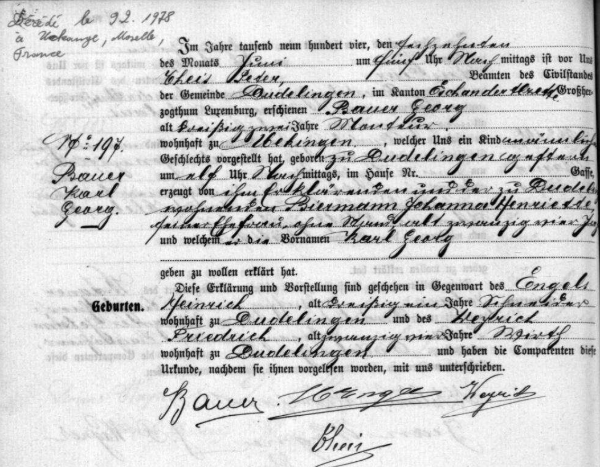 Décédé le 9 2. 1978
à Uckange, Moselle,
France
Im Jahre tausend neun hundert vier, den sechzehnten
des Monats Juni um fünf Uhr Nachmittags ist vor Uns
Theis Peter, Beamten des Civilstandes
der Gemeinde Dudelingen, im Kanton Esch an der Alzette Großher-
zogthum Luxemburg, erschienen Bauer Georg
alt dreißig zwei Jahre Monteur
wohnhaft zu , welcher Uns ein Kind männlich
Geschlechts vorgestellt hat, geboren zu Dudelingen gestern
um elf Uhr Nachmittags, im Hause Nr. Gasse,
erzeugt von ihm Erklärenden und der zu Dudel
wohnenden Biermann Johanna Henriette
seiner Ehefrau, ohne Stand, alt zwanzig vier J
und welchem er die Vornamen Karl Georg
geben zu wollen erklärt hat.
Diese Erklärung und Vorstellung sind geschehen in Gegenwart des Engels
Heinrich, alt dreißig ein Jahre Schneider
wohnhaft zu Dudelingen und des Weyrich
Friedrich, alt zwanzig vier Jahre Wirth
wohnhaft zu Dudelingen und haben die Comparenten diese
Urkunde, nachdem sie ihnen vorgelesen worden, mit uns unterschrieben.
Nº 197
Bauer
Karl
Georg.
Geburten.
Bauer. H Engel Weyrich
Theis